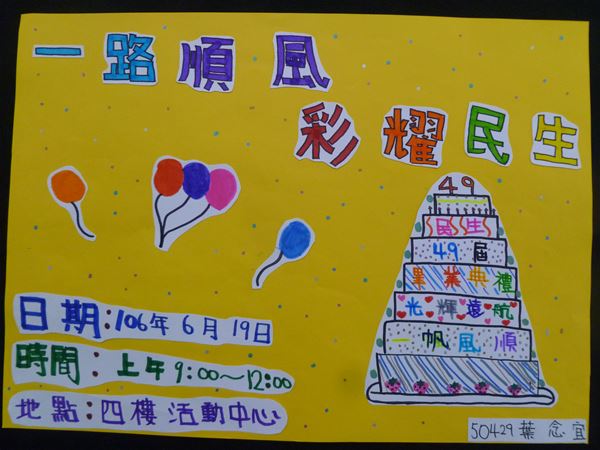 一路順風
彩耀民生
49
民生
49屆
畢業典禮
光輝遠航
一帆風順
日期：106年6月19日
時間：上午9:00～12:00
地點：四樓活動中心
50429葉念宜